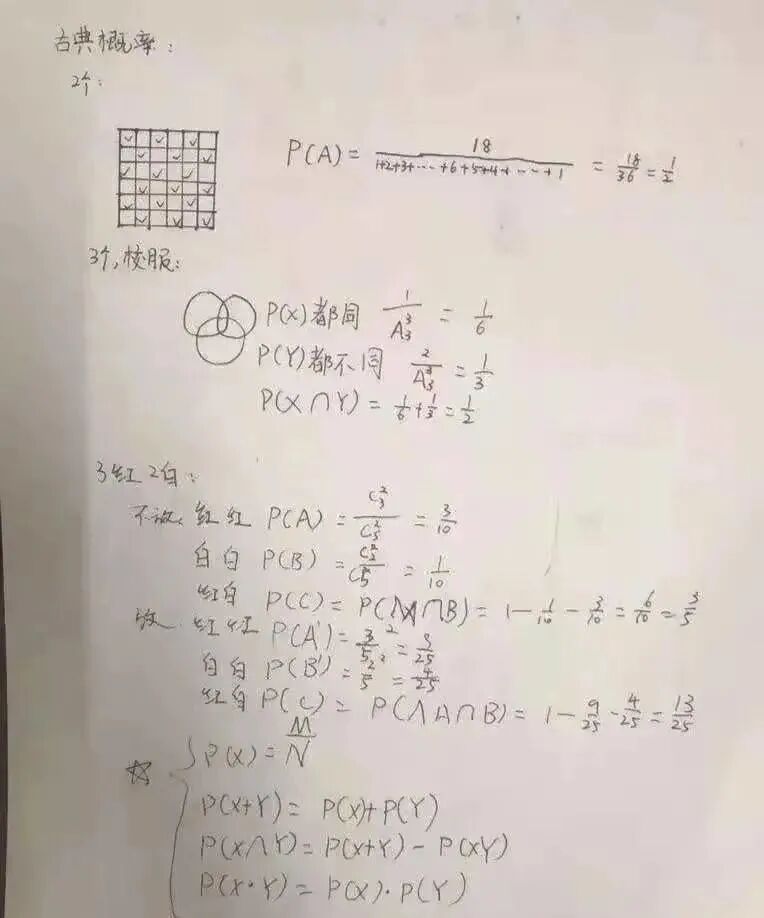 古典概率:
2个:
P(A) = 18 / 1+2+3+…+6+5+4+…+1 = 18/36 = 1/2
3个,校服:
P(X)都同 1/A₃³ = 1/6
P(Y)都不同 2/A₃³ = 1/3
P(X∩Y) = 1/6+1/3 = 1/2
3红2白:
不放. 红红 P(A) = C₃²/C₅² = 3/10
白白 P(B) = C₂²/C₅² = 1/10
红白 P(C) = P(∩B) = 1 - 1/10 - 3/10 = 6/10 = 3/5
放. 红红 P(A') = 3/5² = 9/25
白白 P(B') = 2/5² = 4/25
红白 P(C) = P(∧A∩B) = 1 - 9/25 - 4/25 = 13/25
☆ P(X) = M/N
P(X+Y) = P(X)+P(Y)
P(X∩Y) = P(X+Y) - P(XY)
P(X·Y) = P(X)·P(Y)